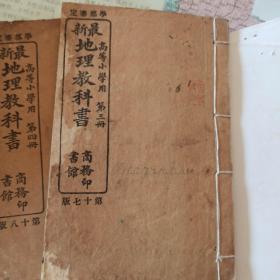 學部審定
最新地理教科書
高等小學用 第三冊
商務印書館
第十七版
學部審定
最新地理教科書
高等小學用 第四冊
商務印書館
第十八版